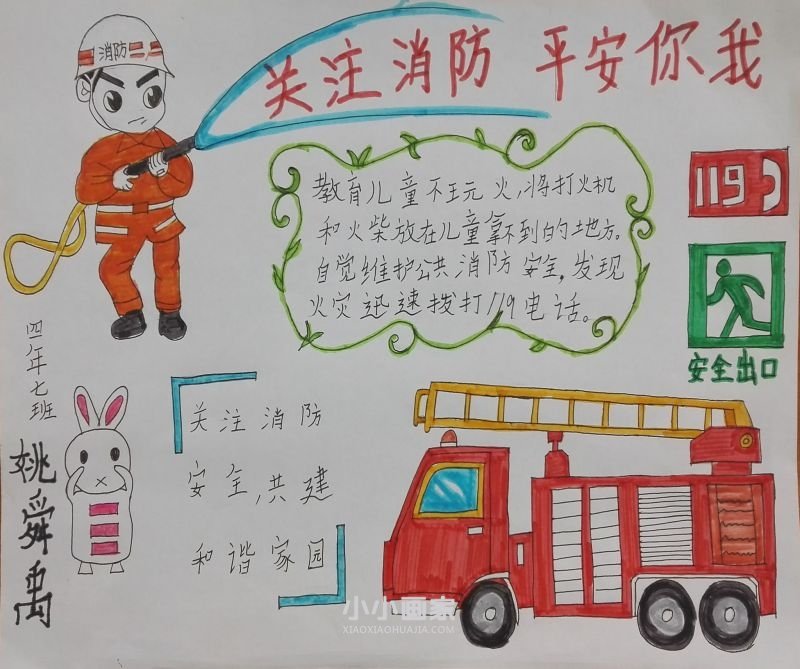 消防
关注消防 平安你我
教育儿童不玩火,将打火机
和火柴放在儿童拿不到的地方。
自觉维护公共消防安全,发现
火灾迅速拨打119电话。
119
安全出口
四年七班
姚舜禹
关注消防
安全,共建
和谐家园
小小画家
XIAOXIAOHUAJIA.COM